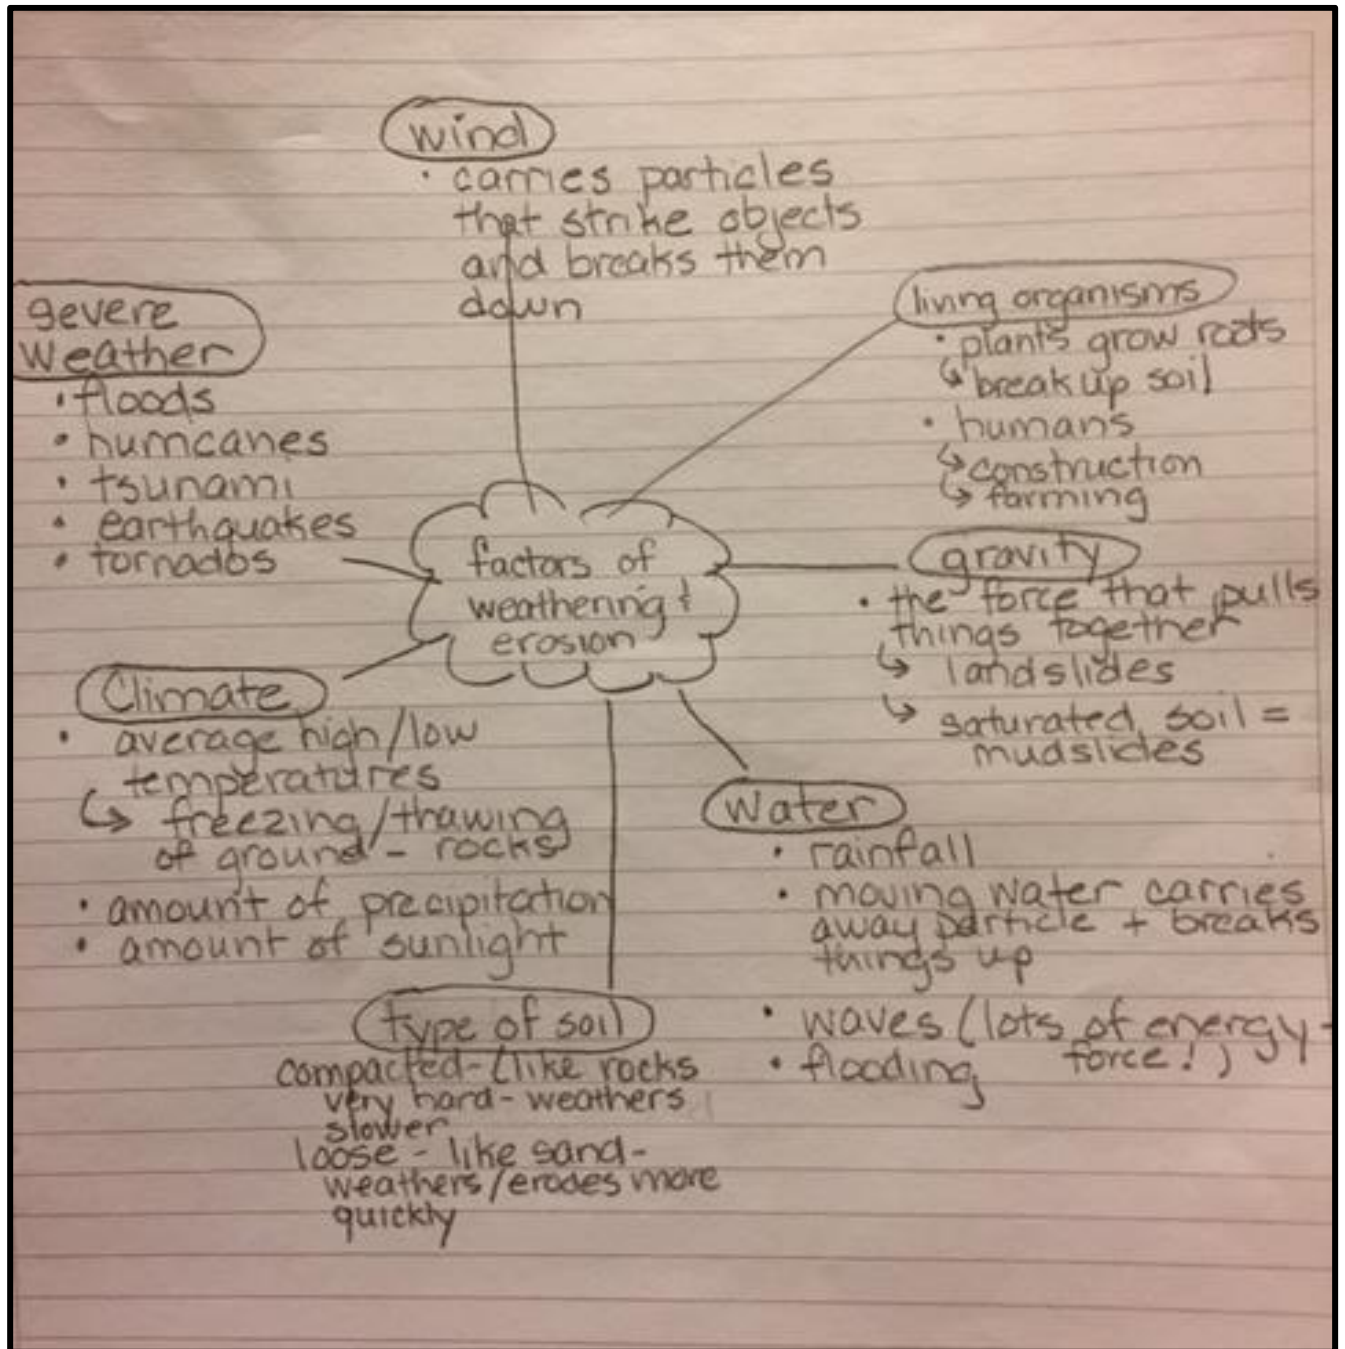 wind
• carries particles
that strike objects
and breaks them
down
severe
weather
• floods
• hurricanes
• tsunami
• earthquakes
• tornados
living organisms
• plants grow roots
↳ break up soil
• humans
↳ construction
↳ farming
factors of
weathering &
erosion
gravity
• the force that pulls
things together
↳ landslides
↳ saturated soil =
mudslides
Climate
• average high/low
temperatures
↳ freezing/thawing
of ground - rocks
• amount of precipitation
• amount of sunlight
Water
• rainfall
• moving water carries
away particle + breaks
things up
• waves (lots of energy -
force!)
• flooding
type of soil
compacted - (like rocks
very hard - weathers
slower
loose - like sand -
weathers/erodes more
quickly